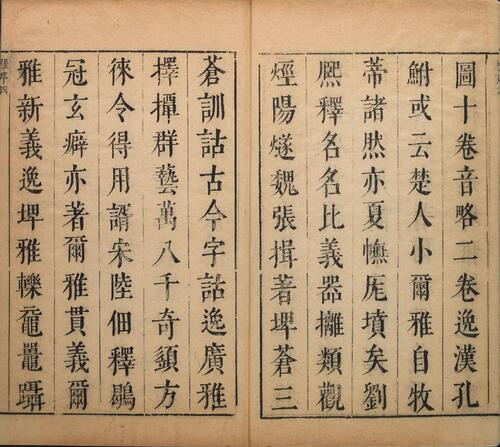 圖十卷音略二卷逸漢孔
鮒或云楚人小爾雅自牧
蒂諸然亦夏幠厖墳矣劉
熈釋名名比義器攡類觀
烴陽燧魏張揖著埤蒼三
蒼訓詁古今字詁逸廣雅
擇撣群藝萬八千奇頴方
徠令得用譌宋陸佃釋鶡
冠玄癖亦著爾雅貫義爾
雅新義逸埤雅轢黿鼂躡